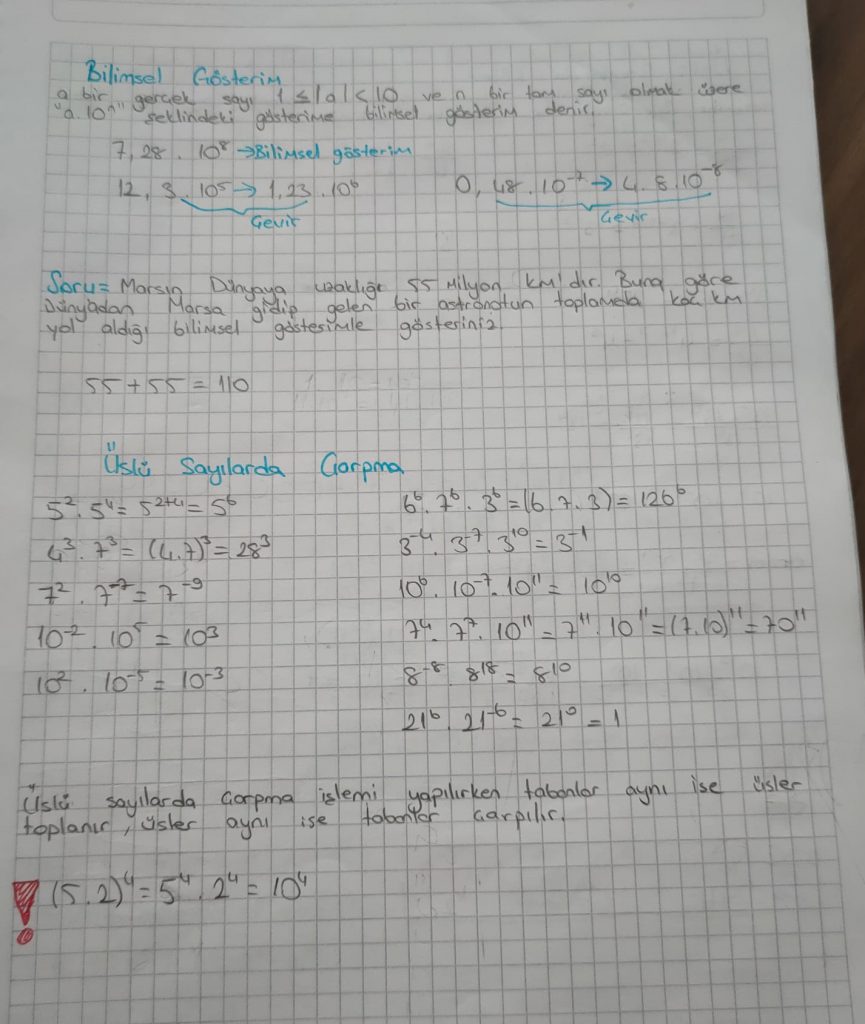 Bilimsel Gösterim
a bir gerçek sayı 1 ≤ |a| < 10 ve n bir tam sayı olmak üzere
"a.10ⁿ" şeklindeki gösterime bilimsel gösterim denir.
7,28 . 10⁸ → Bilimsel gösterim
12,3 . 10⁵ → 1,23 . 10⁶ 0,48 . 10⁻⁷ → 4.8.10⁻⁸
Çevir Çevir
Soru = Marsın Dünyaya uzaklığı 55 Milyon km'dır. Buna göre
Dünyadan Marsa gidip gelen bir astronotun toplamda kaç km
yol aldığı bilimsel göstesimle gösteriniz.
55 + 55 = 110
Üslü Sayılarda Çarpma
5² . 5⁴ = 5²⁺⁴ = 5⁶ 6⁶ . 7⁶ . 3⁶ = (6.7.3) = 126⁶
4³ . 7³ = (4.7)³ = 28³ 3⁻⁴ . 3⁻⁷ . 3¹⁰ = 3⁻¹
7² . 7⁻⁷ = 7⁻⁹ 10⁶ . 10⁻⁷ . 10¹¹ = 10¹⁰
10⁻² . 10⁵ = 10³ 7⁴ . 7⁷ . 10¹¹ = 7¹¹ . 10¹¹ = (7.10)¹¹ = 70¹¹
10² . 10⁻⁵ = 10⁻³ 8⁻⁸ . 8¹⁸ = 8¹⁰
21⁶ . 21⁻⁶ = 21⁰ = 1
Üslü sayılarda çarpma işlemi yapılırken tabanlar aynı ise üsler
toplanır, üsler aynı ise tabanlar çarpılır.
! (5.2)⁴ = 5⁴ . 2⁴ = 10⁴